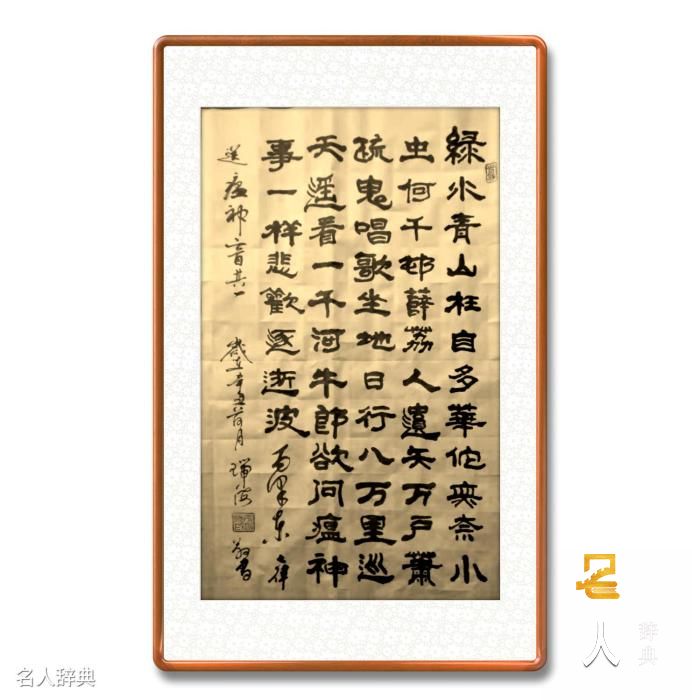 緑水青山枉自多華佗無奈小
虫何千邨薜荔人遺矢万戶蕭
疏鬼唱歌坐地日行八万里巡
天遥看一千河牛郎欲问瘟神
事一样悲歡逐逝波 東 律
送瘟神二首其一 歲在辛丑荷月 瑞海 書
名人辞典
名人辞典